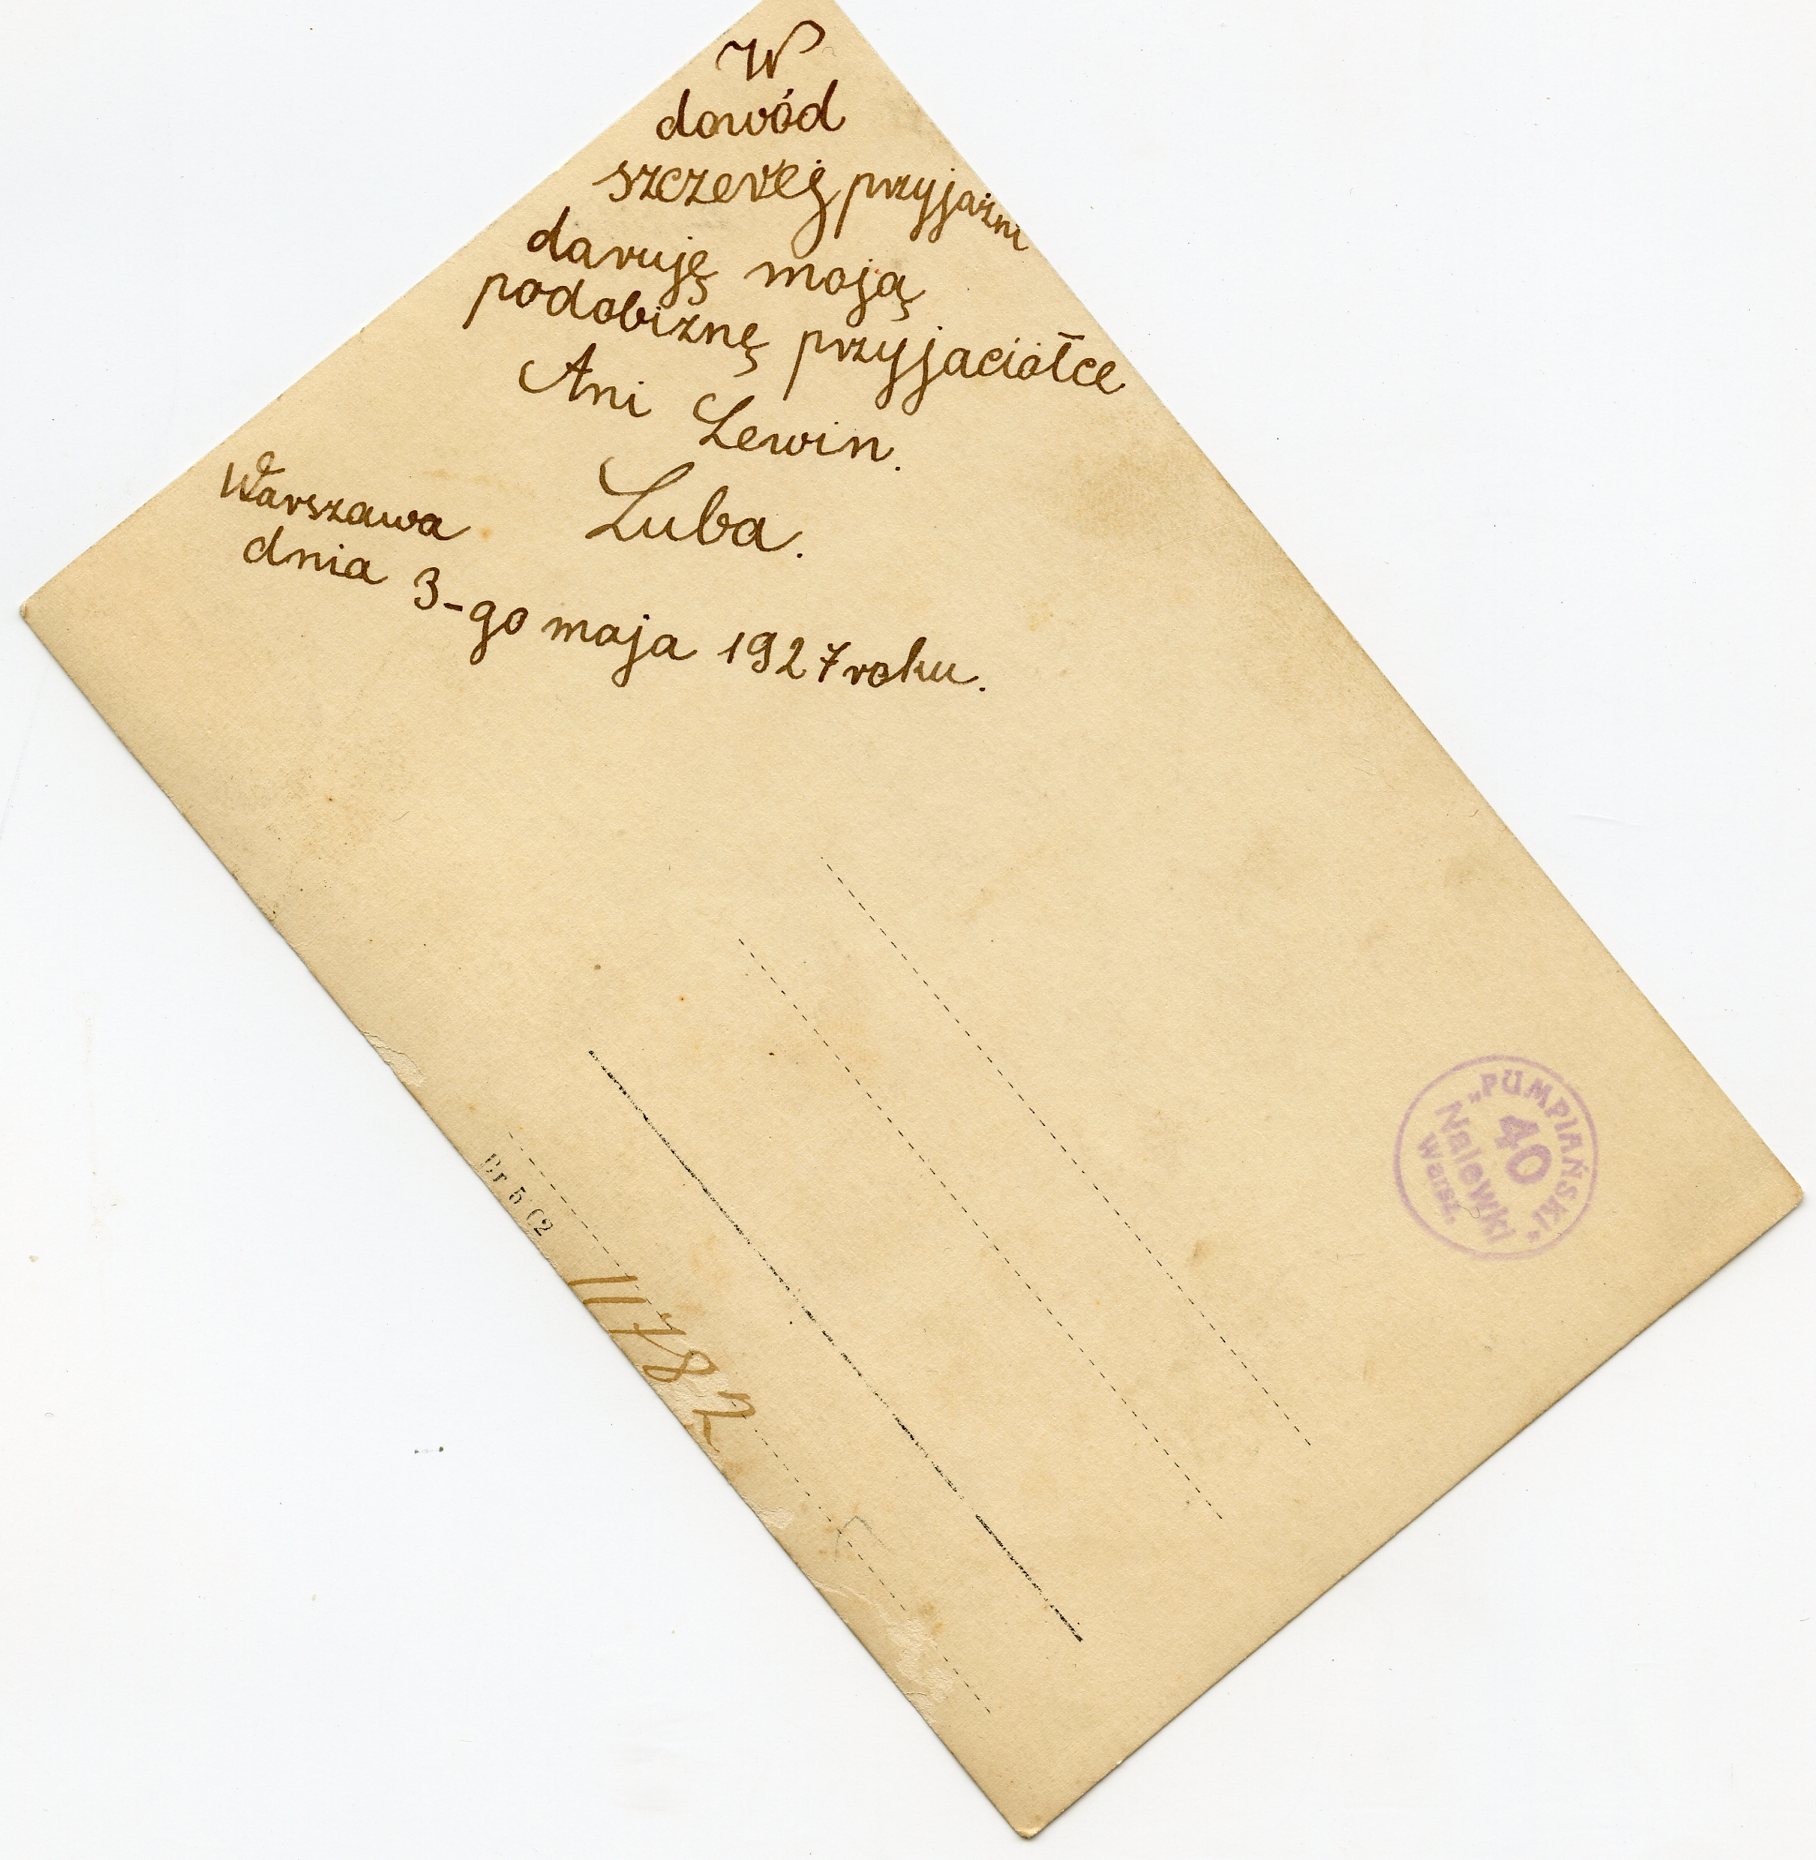 W
dowód
szczerej przyjaźni
daruję moją
podobiznę przyjaciółce
Ani Lewin.
Luba.
Warszawa
dnia 3-go maja 1927 roku.
„PUMPIAŃSKI“
40
Nalewki
Warsz.
11782